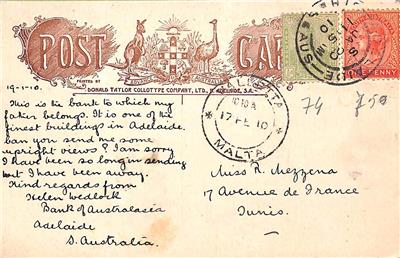 POST CARD
DONALD TAYLOR COLLOTYPE COMPANY, LTD., ADELAIDE, S.A.
19-1-10.
This is the bank to which my
father belongs. It is one of the
finest buildings in Adelaide.
Can you send me some
upright views? I am sorry
I have been so long in sending
but I have been away.
Kind regards from
Helen
Bank of Australasia
Adelaide
S. Australia.
VALLETTA
10 10 A
17 FE 10
MALTA
AUS
PENNY
74
750
Miss R. Mezzena
17 Avenue de France
Tunis.